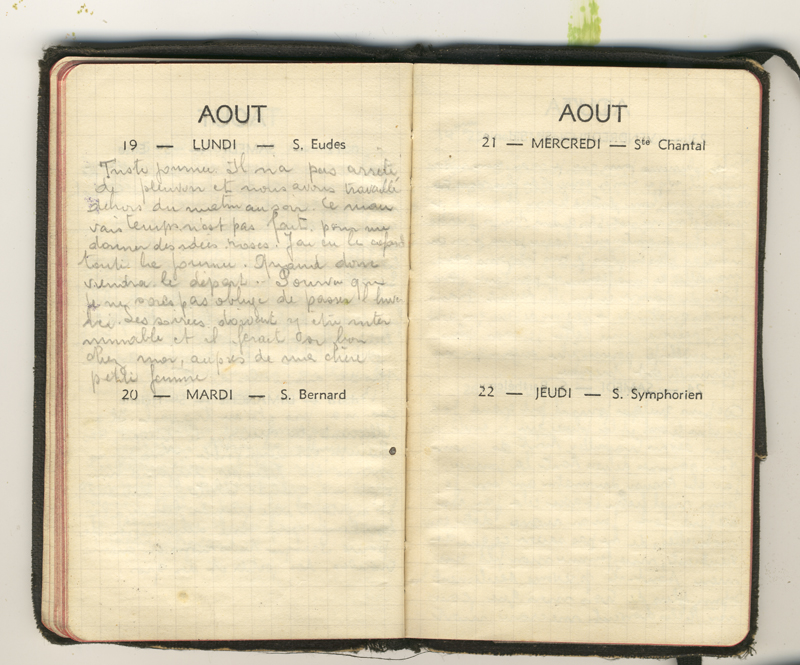 AOUT
19 — LUNDI — S. Eudes
Triste journée il n'a pas arrêté
de pleuvoir et nous avons travaillé
dehors du matin au soir. Ce mau
vais temps n'est pas fait pour me
donner des idées roses. J'ai eu le cafard
toute la journée. Quand donc
viendra le départ. Pourvu que
je ne sois pas obligé de passer l'hiver
ici. Les soirées doivent y être inter
minable et il ferait si bon
chez moi, auprès de ma chère
petite femme
20 — MARDI — S. Bernard
AOUT
21 — MERCREDI — Ste Chantal
22 — JEUDI — S. Symphorien